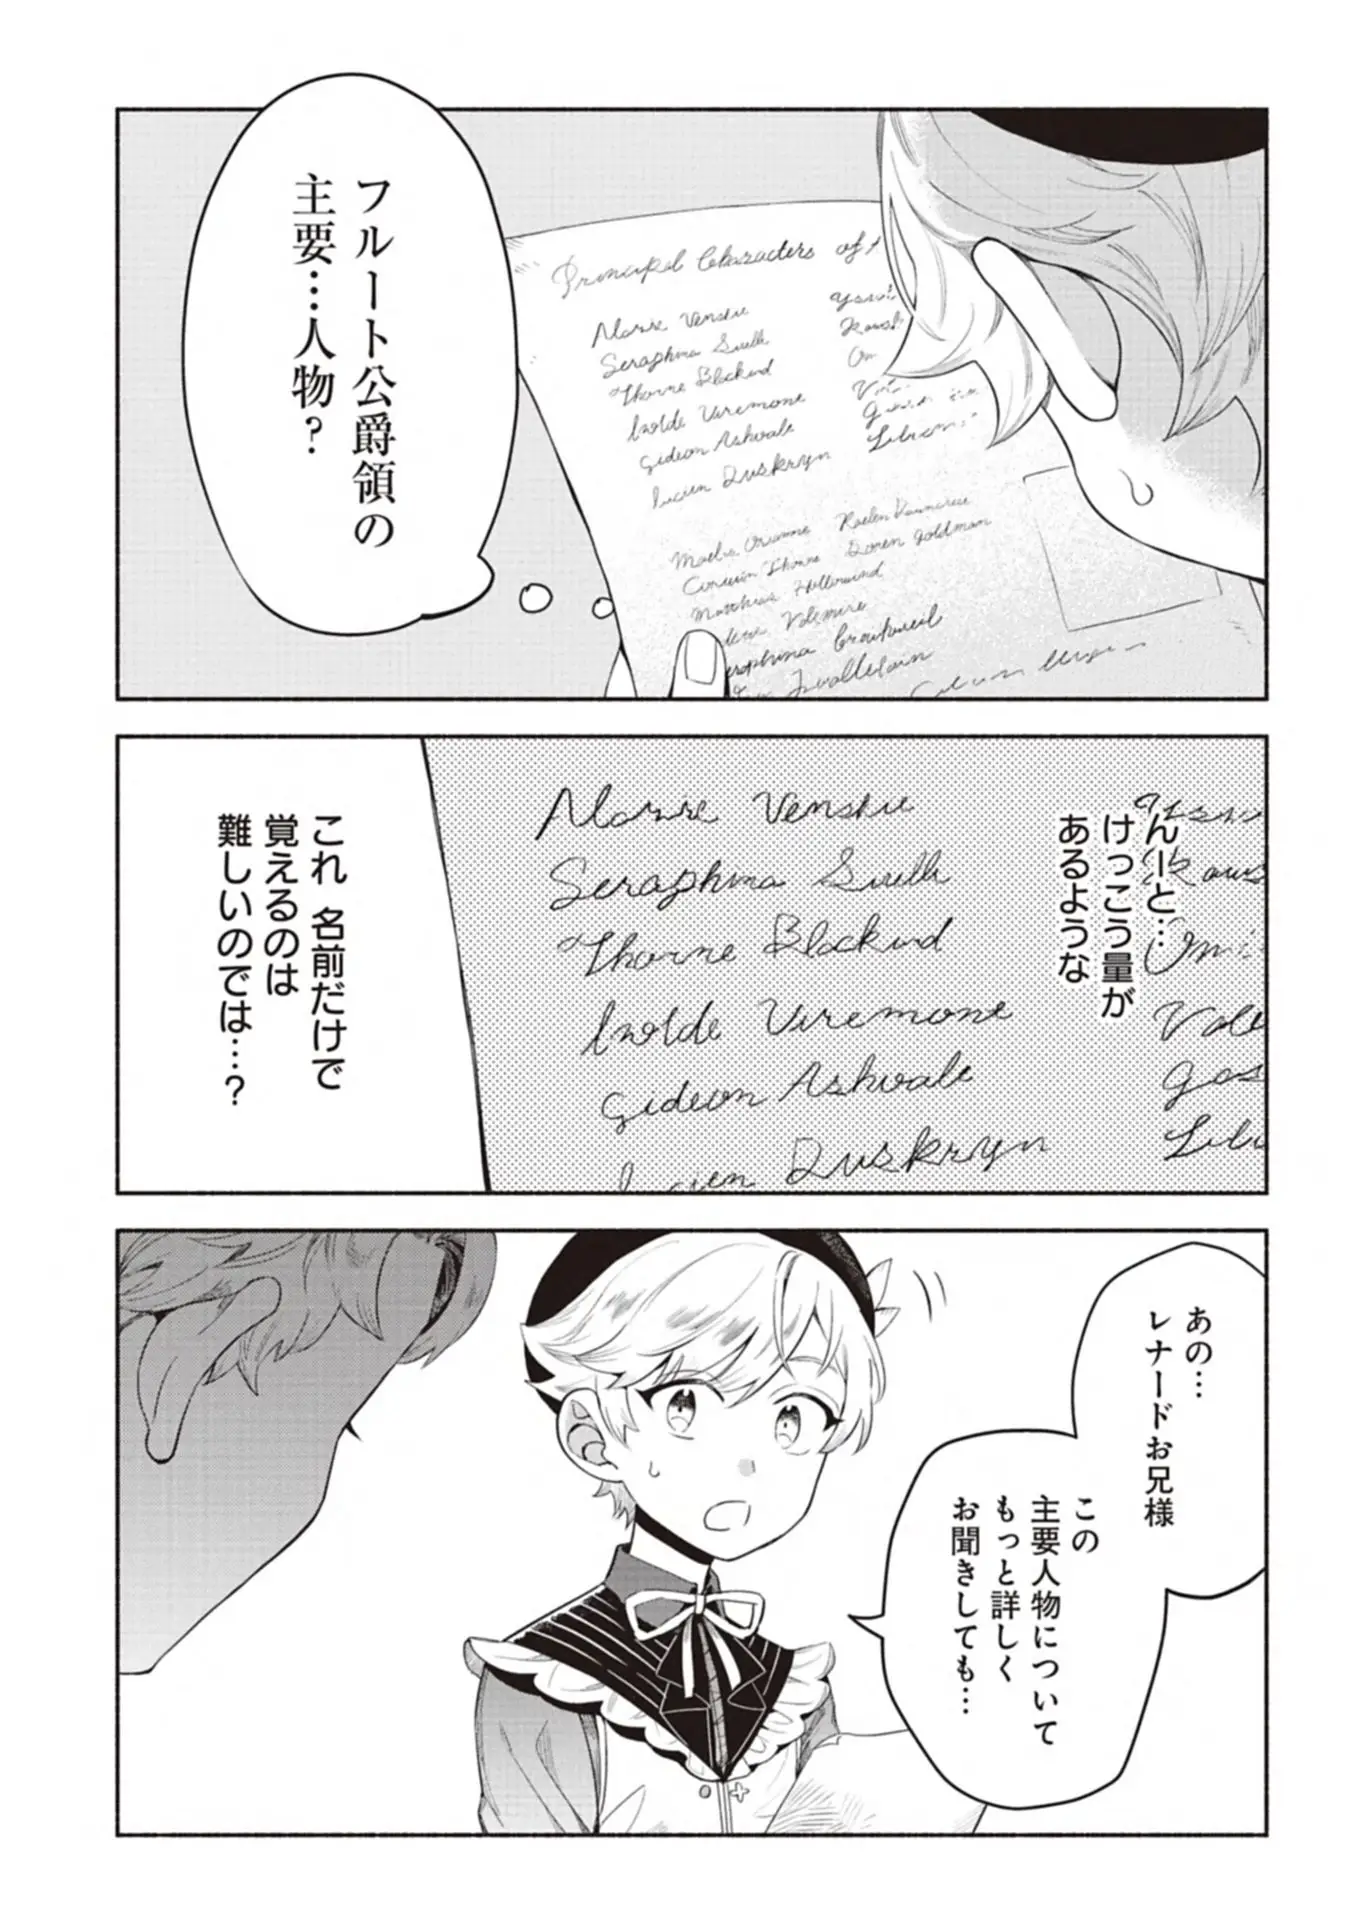 フルート公爵領の
主要…人物?
Principal Characters of
Marie Venshie
Seraphina Suelle
Thorne Blackind
Isolde Viremone
Gideon Ashvale
Lucien Duskryn
Corwin Thorne Doren Goldman
Matthias Hollowind
んーと…
けっこう量が
あるような
Marie Venshie
Seraphina Suelle
Thorne Blackind
Isolde Viremone
Gideon Ashvale
Lucien Duskryn
これ 名前だけで
覚えるのは
難しいのでは…?
あの…
レナードお兄様
この
主要人物について
もっと詳しく
お聞きしても…